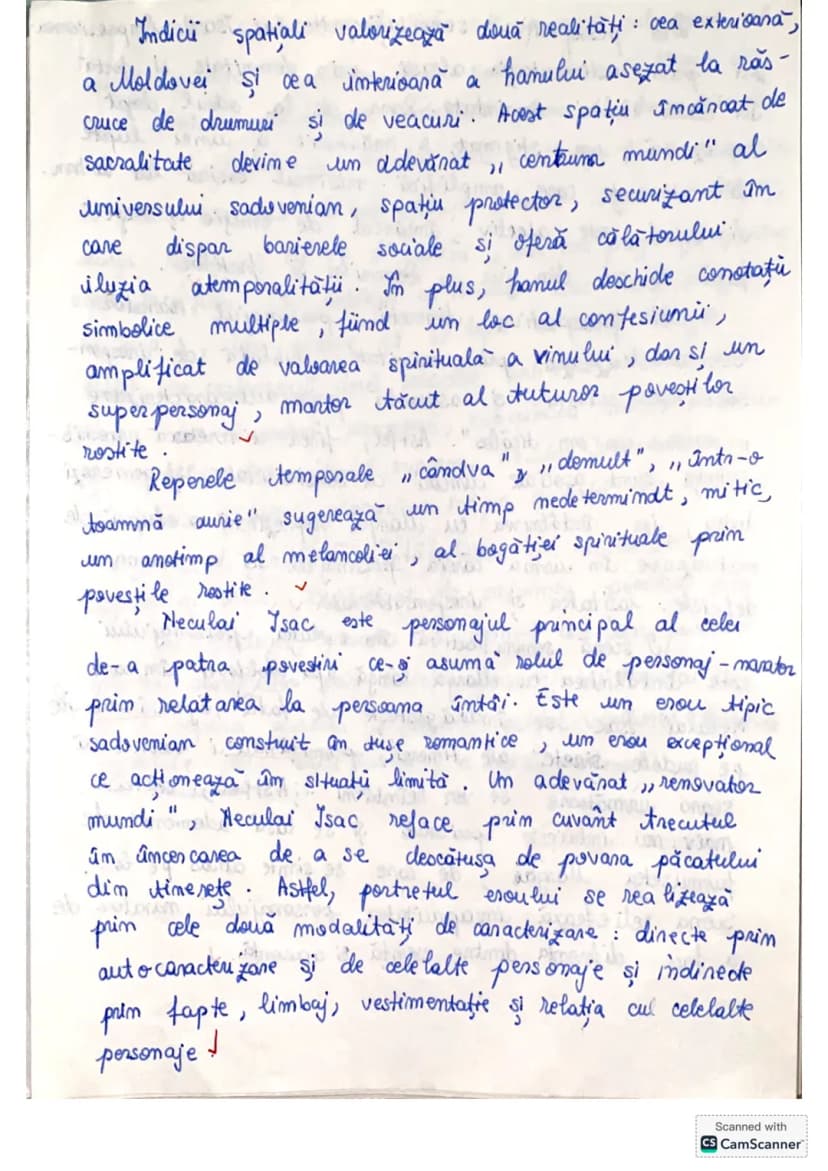 Indicii spațiali valorizează două realități: cea exterioară,
a Moldovei și cea interioară a hanului asezat la răs-
cruce de drumuri și de veacuri. Acest spațiu încărcat de
sacralitate devine un adevărat „centrum mundi" al
universului sadovenian, spațiu protector, securizant în
care dispar barierele sociale și oferă călătorului
iluzia atemporalității. În plus, hanul deschide conotații
simbolice multiple, fiind un loc al confesiunii,
amplificat de valoarea spirituală a vinului, dar și un
superpersonaj, martor tăcut al tuturor poveștilor
rostite.
Reperele temporale „cândva", „demult", „într-o
toamnă aurie" sugerează un timp nedeterminat, mitic,
un anotimp al melancoliei, al bogăției spirituale prin
poveștile rostite.
Neculai Isac este personajul principal al celei
de-a patra povestiri ce-și asumă rolul de personaj-narator
prin relatarea la persoana întâi. Este un erou tipic
sadovenian construit în tușe romantice, un erou excepțional
ce acționează în situații limită. Un adevărat „renovator
mundi", Neculai Isac reface prin cuvânt trecutul
în încercarea de a se descătușa de povara păcatului
din tinerețe. Astfel, portretul eroului se realizează
prin cele două modalități de caracterizare: directe prin
autocaracterizare și de celelalte personaje și indirecte
prin fapte, limbaj, vestimentație și relația cu celelalte
personaje
Scanned with
CS CamScanner